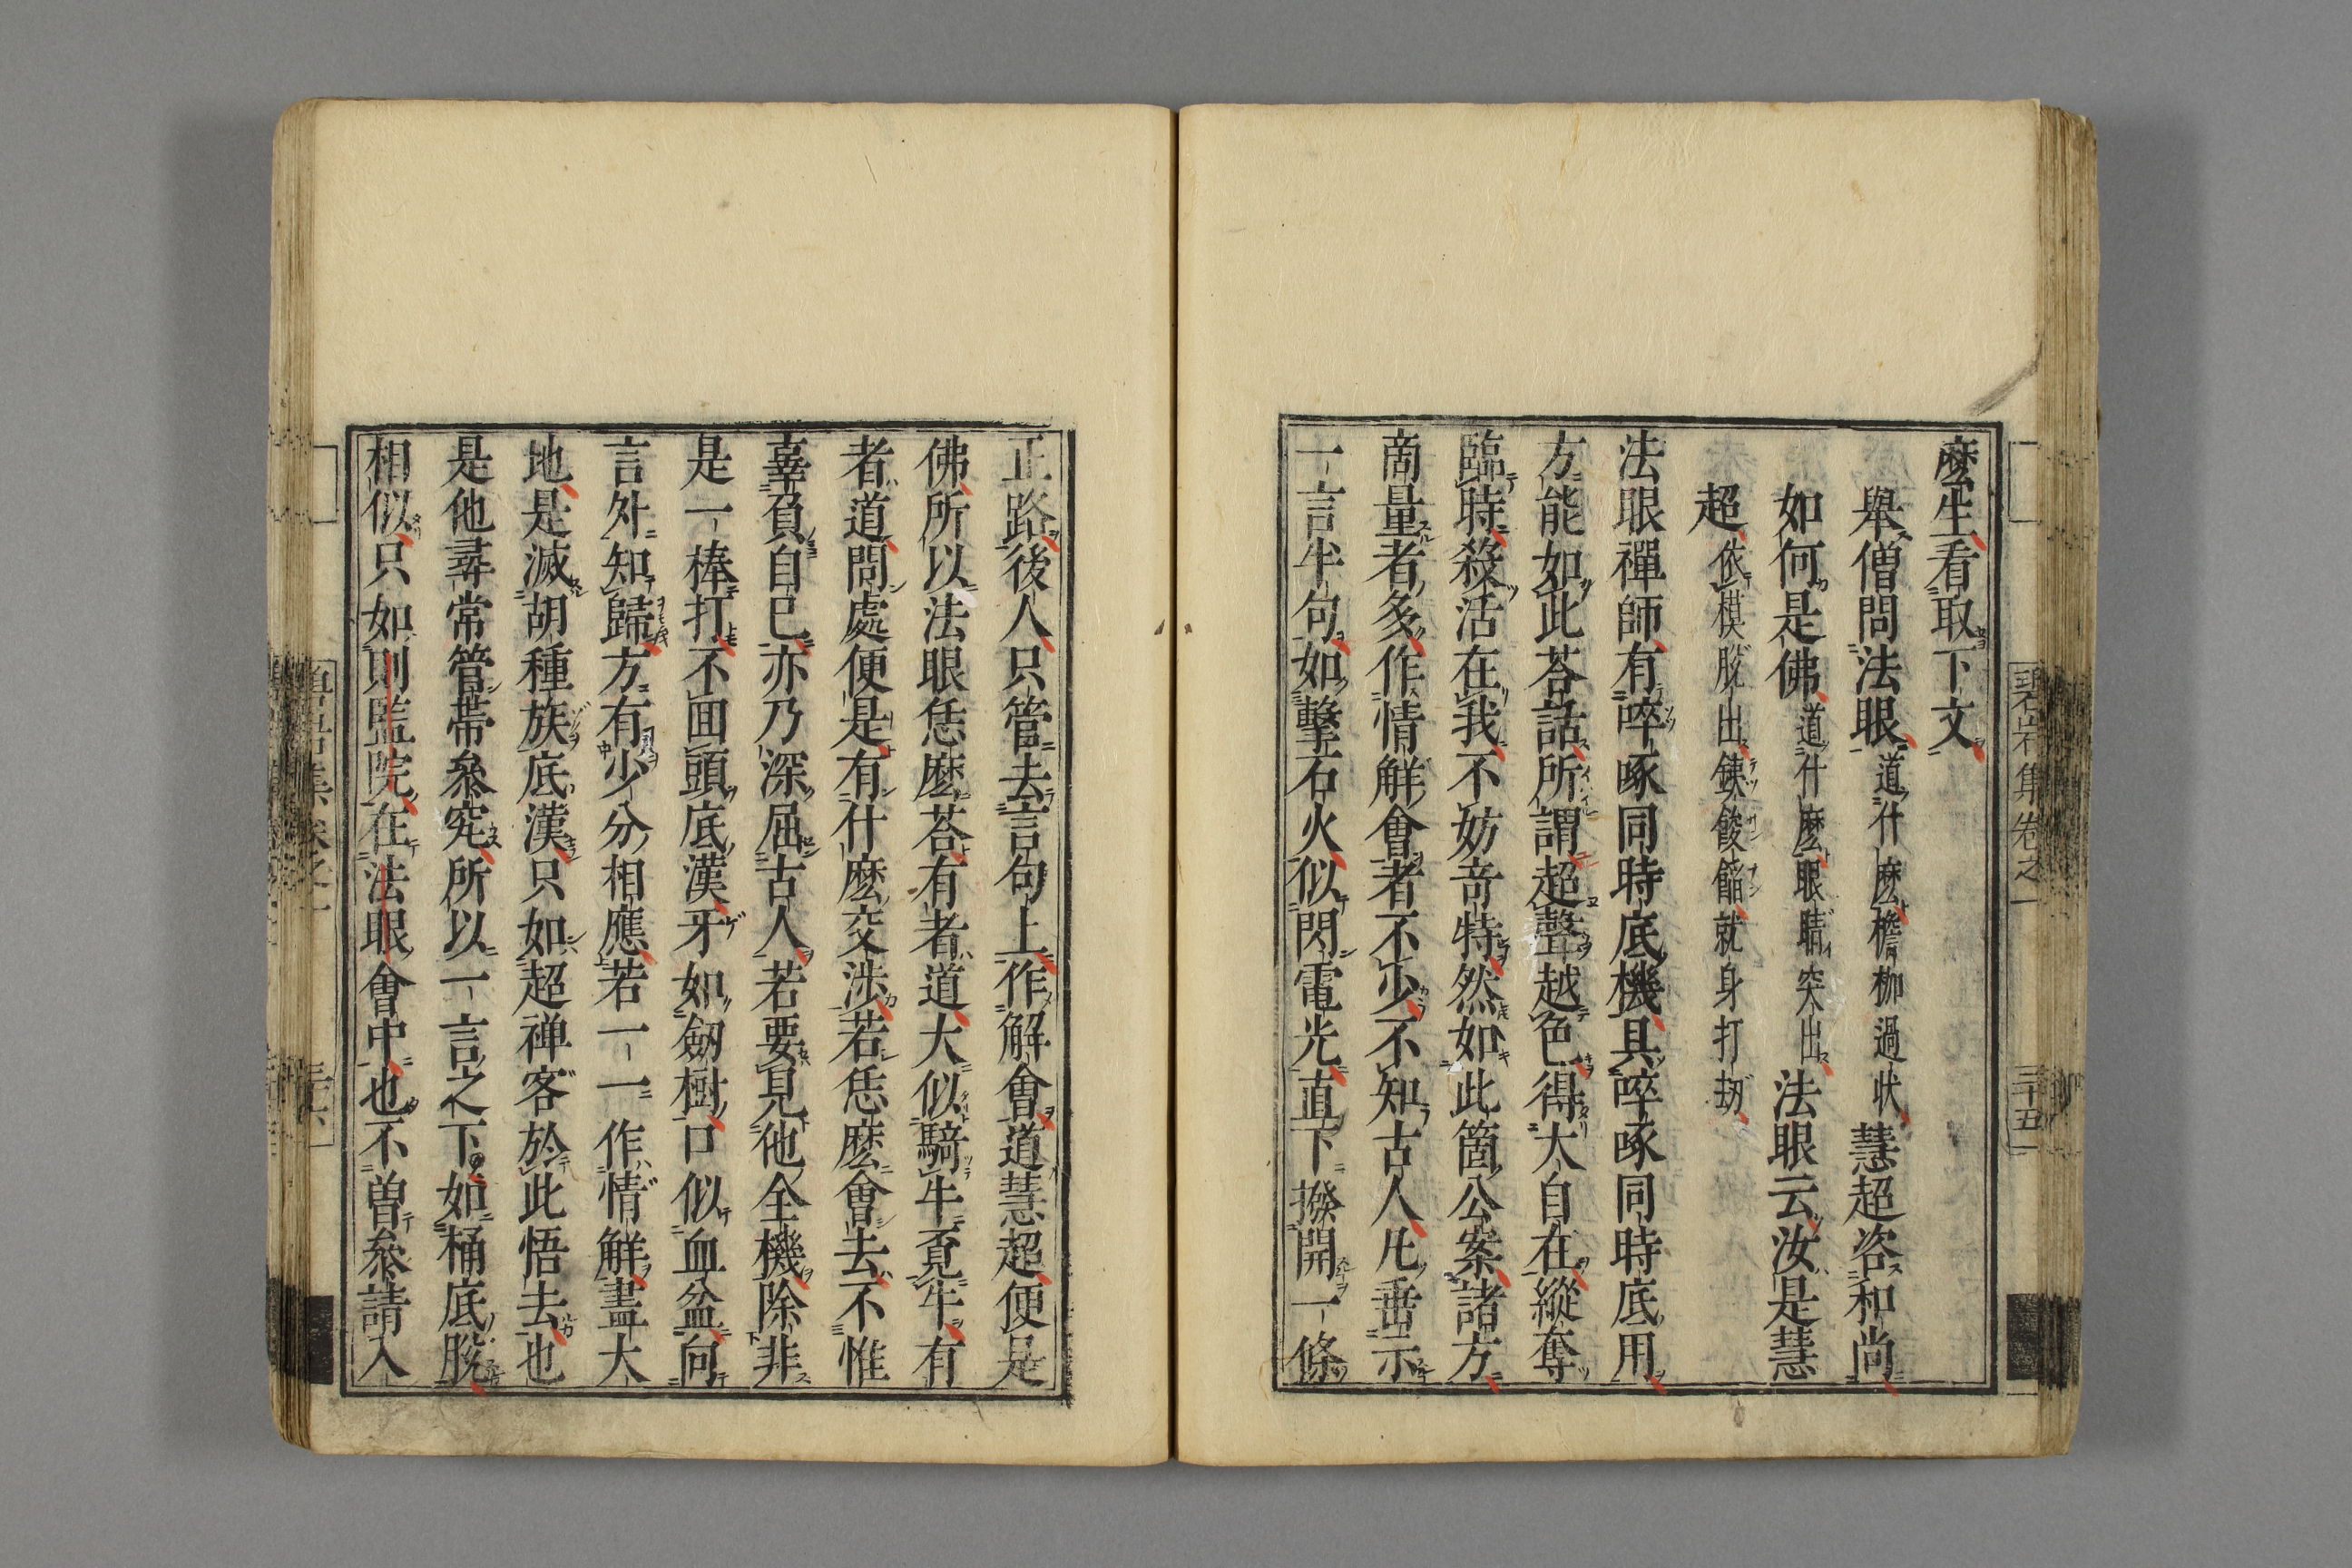 麽生看取下文
舉僧問法眼道什麽檐枷過状慧超咨和尚
如何是佛道什麽眼睛突出法眼云汝是慧
超依模脱出鐵餕餡就身打刼
法眼禪師有啐啄同時底機具啐啄同時底用
方能如此荅話所謂超聲越色得大自在縱奪
臨時殺活在我不妨竒特然如此箇公案諸方
啇量者多作情解會者不少不知古人凡垂示
一言半句如擊石火似閃電光直下撥開一條
正路後人只管去言句上作解會道慧超便是
佛所以法眼恁麽荅有者道大似騎牛覔牛有
者道問處便是有什麽交渉若恁麽會去不惟
辜負自己亦乃深屈古人若要見他全機除非
是一棒打不囬頭底漢牙如劒樹口似血盆向
言外知歸方有少分相應若一一作情解盡大
地是滅胡種族底漢只如超禅客於此悟去也
是他尋常管帯叅究所以一言之下如桶底脱
相似只如則監院在法眼會中也不曽叅請入
碧岩集卷之一
三十五